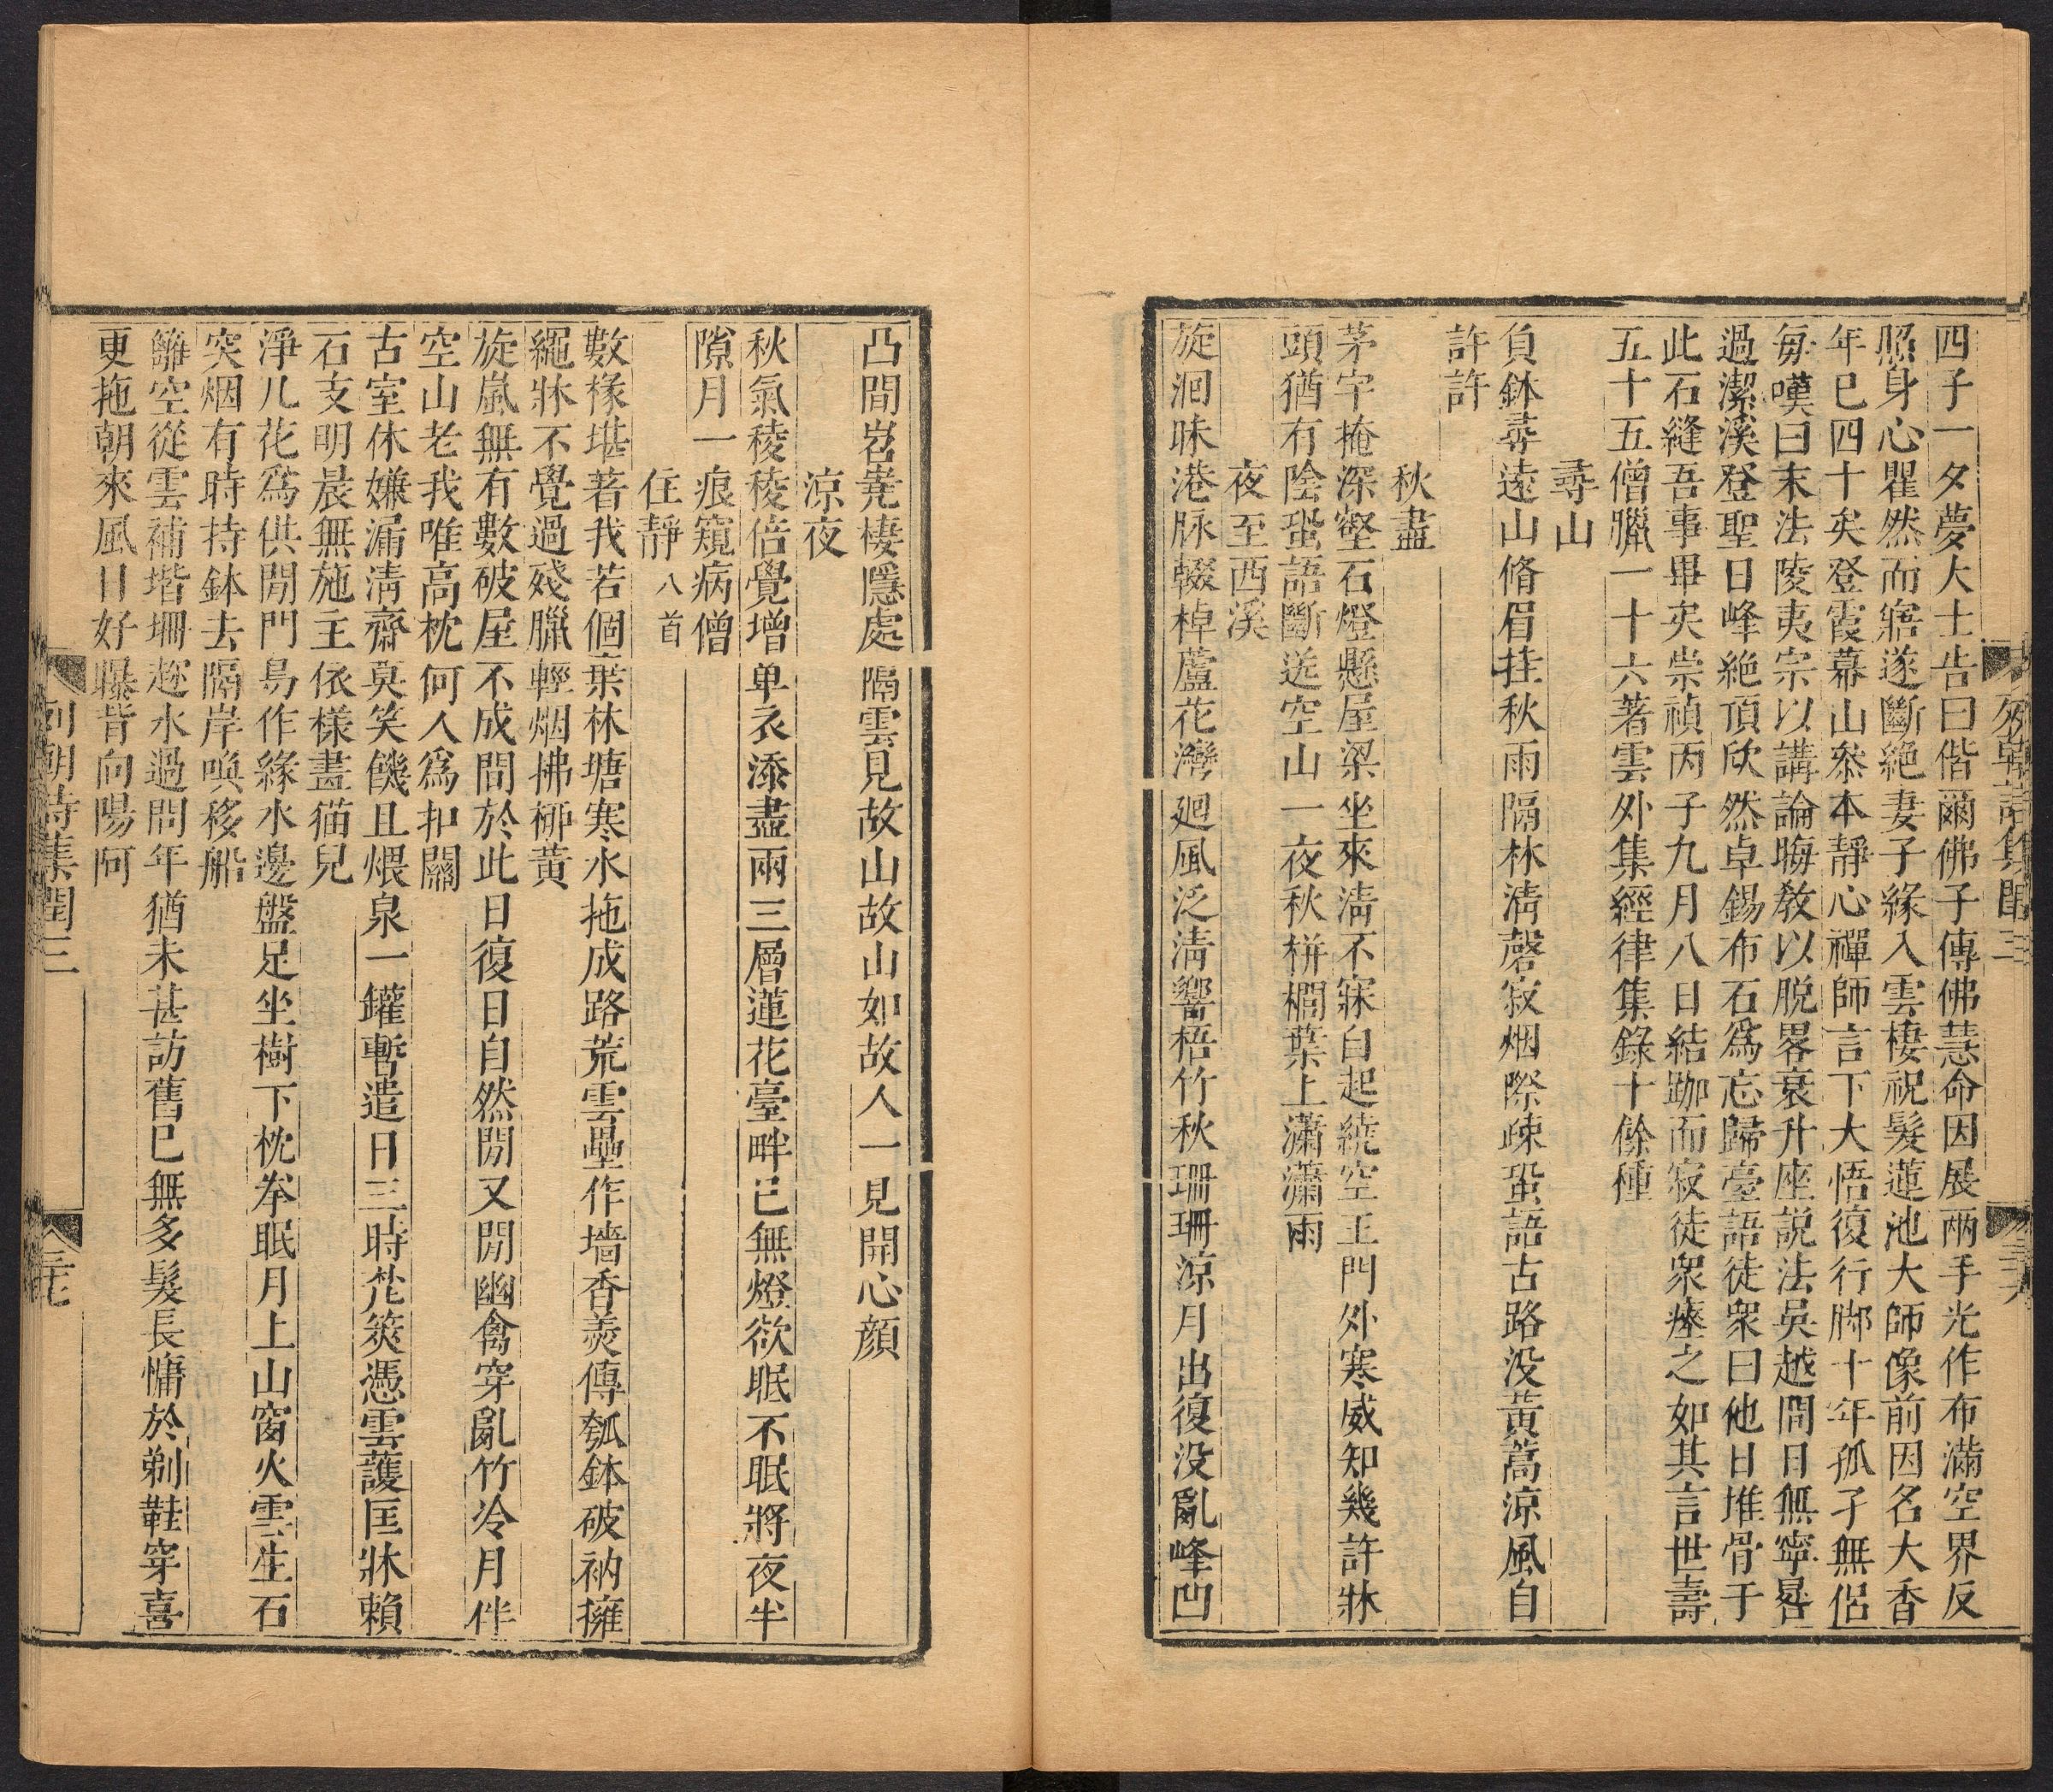 四子一夕夢大士告曰偕爾佛子傳佛慧命因展兩手光作布滿空界反
照身心瞿然而寤遂斷絶妻子緣入雲棲祝髮蓮池大師像前因名大香
年已四十矣登霞幕山叅本靜心禪師言下大悟復行脚十年孤孑無侶
毎嘆曰末法陵夷宗以講論晦敎以脱畧衰升座説法吳越間日無寧晷
過潔溪登聖日峰絶頂欣然卓錫布石爲忘歸臺語徒衆曰他日堆骨于
此石縫吾事畢矣崇禎丙子九月八日結跏而寂徒衆瘞之如其言世壽
五十五僧臘一十六著雲外集經律集錄十餘種
尋山
負鉢尋遠山脩眉挂秋雨隔林淸磬寂烟際疎蛩語古路没黃蒿涼風自
許許
秋盡
茅宇掩深壑石燈懸屋梁坐來淸不寐自起繞空王門外寒威知幾許牀
頭猶有陰蛩語斷送空山一夜秋栟櫚葉上瀟瀟雨
夜至西溪
旋洄昧港脉輟棹蘆花灣廻風泛淸響梧竹秋珊珊涼月出復没亂峰凹
列朝詩集閏三
三十六
凸間岧嶤棲隱處隔雲見故山故山如故人一見開心顔
涼夜
秋氣稜稜倍覺增单衣添盡兩三層蓮花臺畔已無燈欲眠不眠將夜半
隙月一痕窺病僧
住靜八首
數椽堪著我若個葉林塘寒水拖成路荒雲壘作墻香羨傳瓠鉢破衲擁
繩牀不覺過殘臘輕烟拂柳黃
旋嵐無有數破屋不成間於此日復日自然閒又閒幽禽穿亂竹冷月伴
空山老我唯高枕何人爲扣關
古室休嫌漏淸齋莫笑饑且煨泉一鑵暫遣日三時芿筴憑雲護匡牀賴
石支明晨無施主依樣畫猫兒
淨几花爲供閒門易作緣水邊盤足坐樹下枕拳眠月上山窗火雲生石
突烟有時持鉢去隔岸喚移船
籬空從雲補堦珊趂水過問年猶未甚訪舊已無多髮長慵於剃鞋穿喜
更拖朝來風日好曝背向陽阿
列朝詩集閏三
三十七